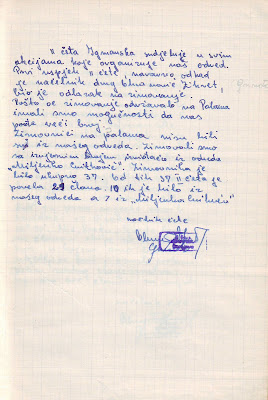 II četa Igmanska sudjeluje u svim
akcijama koje organizuje naš odred.
Prvi uspjeh II čete, naravno otkad
je načelnik drug Ahmet,
bio je odlazak na zimovanje.
Pošto se zimovanje održavalo na Palama
imali smo mogućnosti da nas
pođe veći broj.
Zimovnici na palama nisu bili
svi iz našeg odreda. Zimovali smo
sa izvjesnim brojem iz odreda
„Miljenko Cvitković". Zimovnika je
bilo ukupno 37. Od tih 37 II četa je
povela 29 člana. 10 ih je bilo iz
našeg odreda a 7 iz „Miljenka Cvitkovića"
načelnik čete